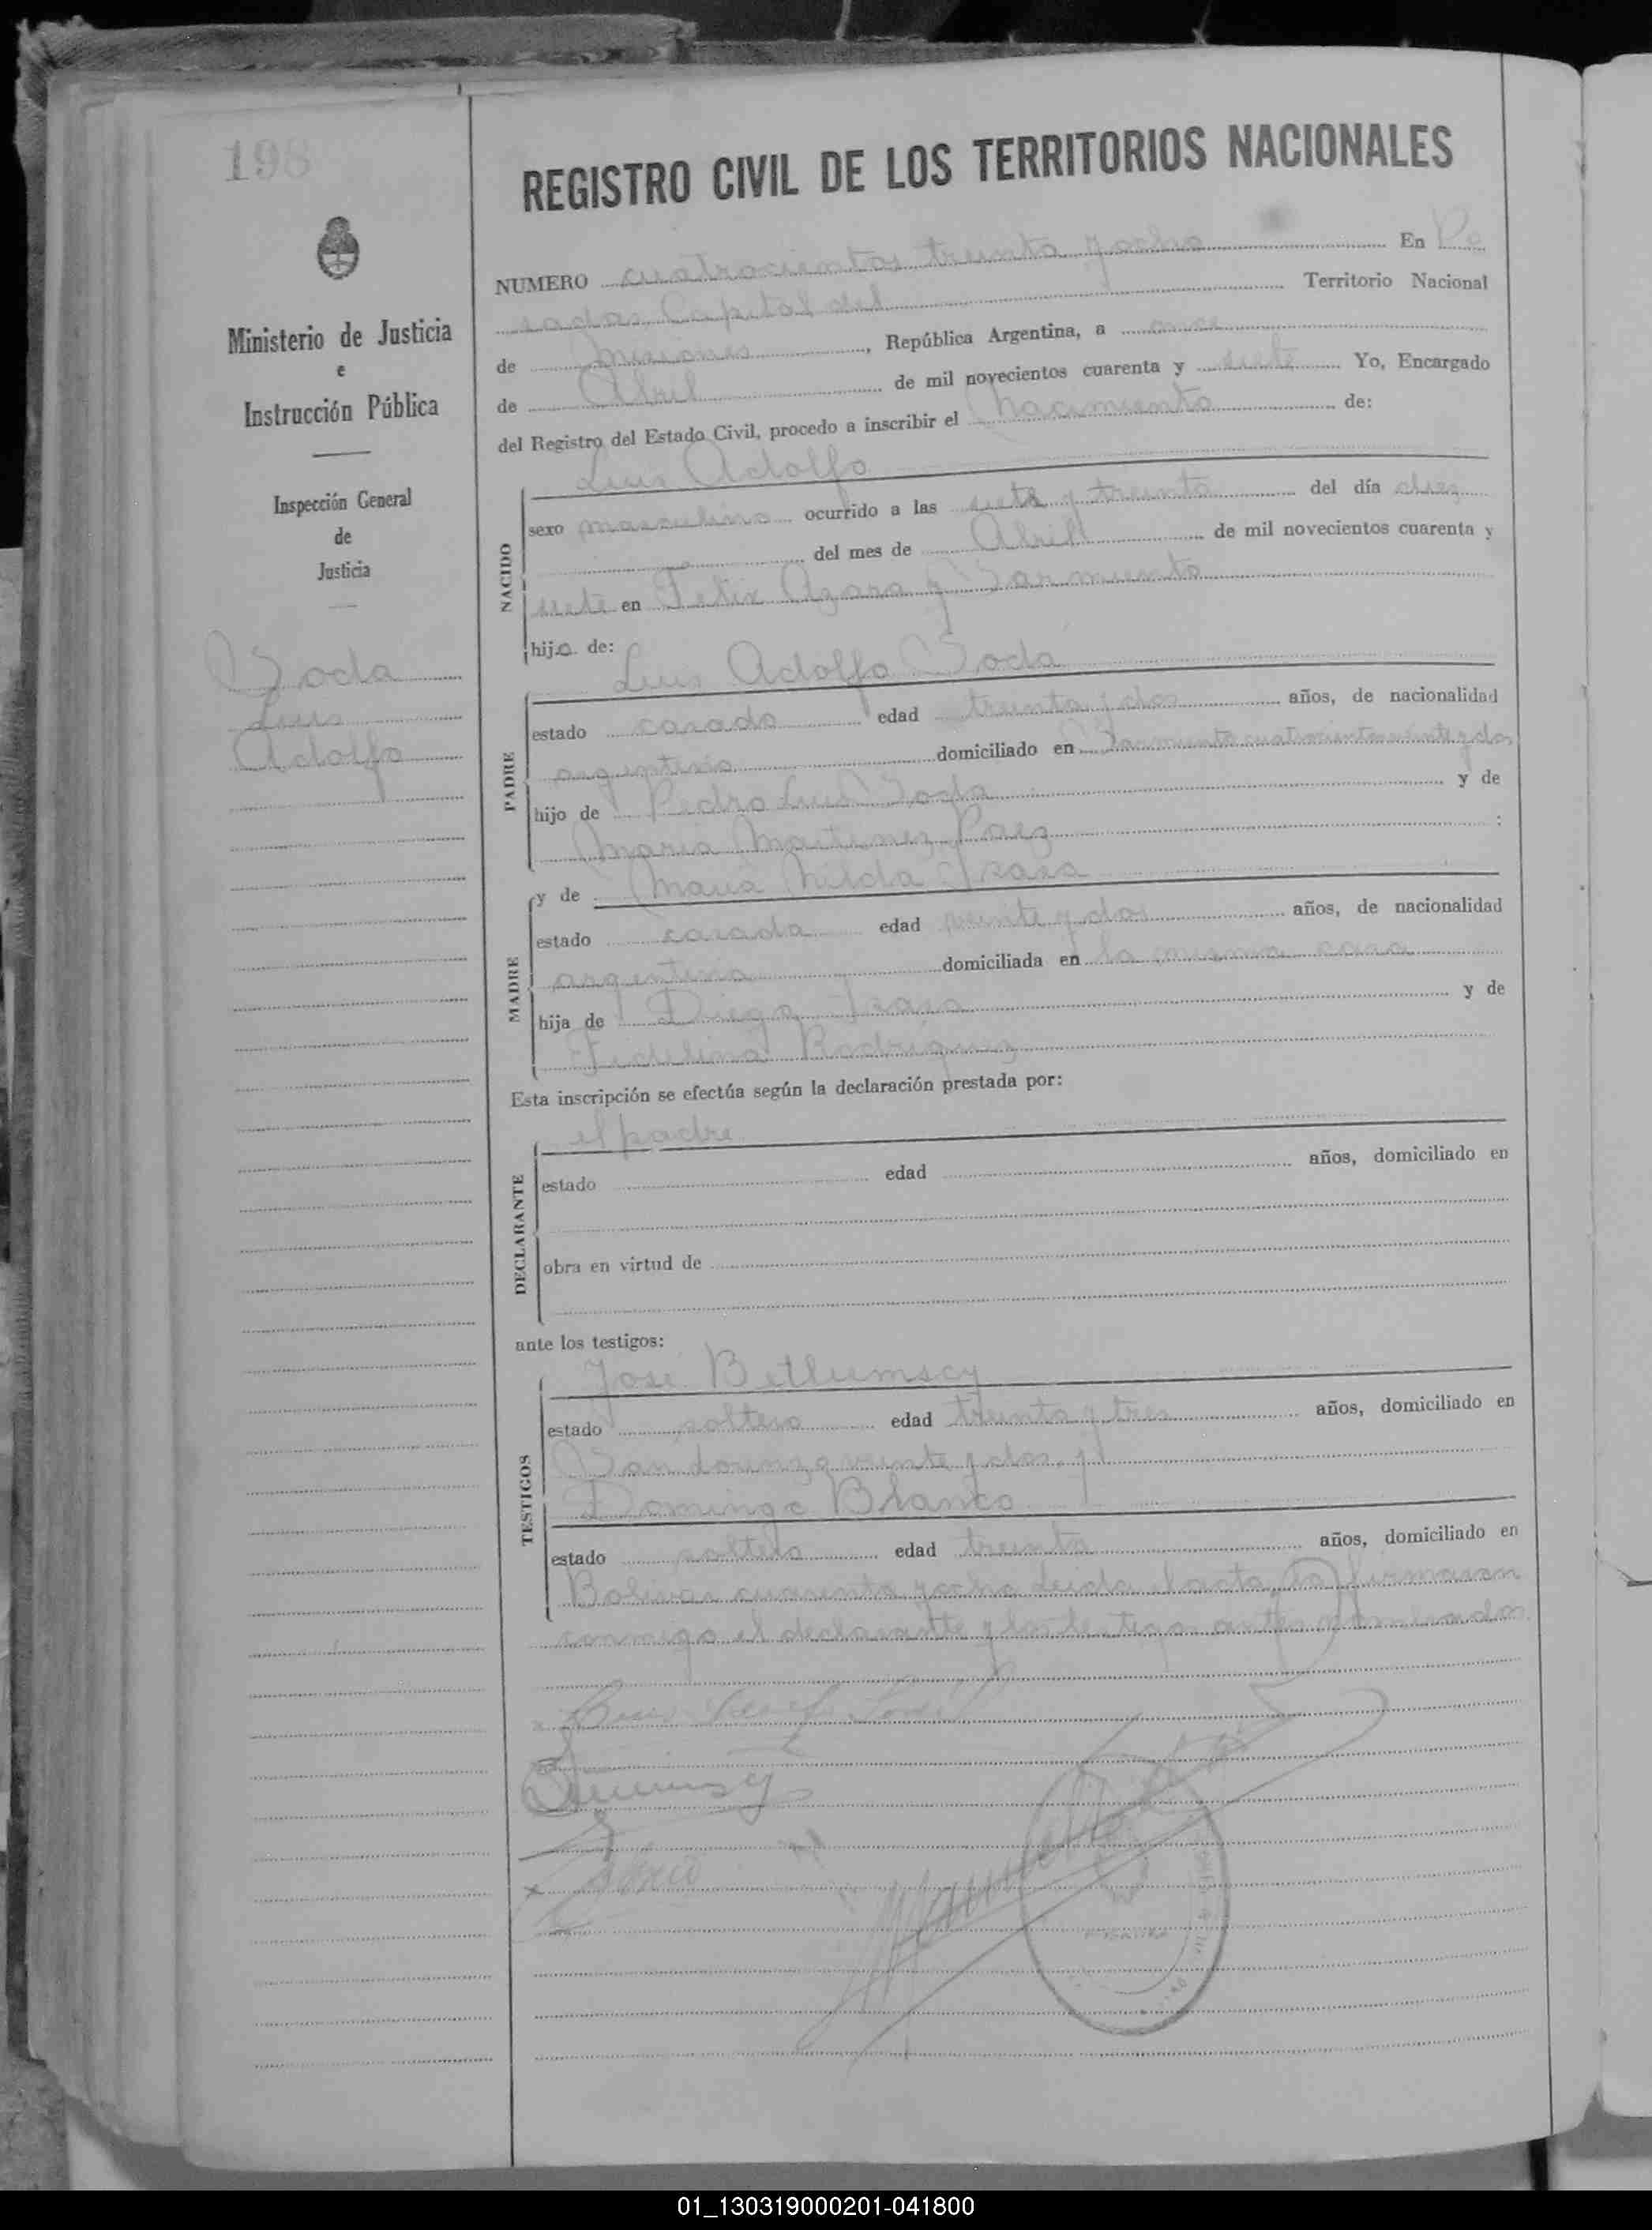 198
REGISTRO CIVIL DE LOS TERRITORIOS NACIONALES
Ministerio de Justicia
e
Instrucción Pública
Inspección General
de
Justicia
Soda
Luis
Adolfo
NUMERO cuatrocientos treinta y ocho En Po
sadas Capital del Territorio Nacional
de Misiones, República Argentina, a once
de Abril de mil novecientos cuarenta y siete Yo, Encargado
del Registro del Estado Civil, procedo a inscribir el nacimiento de:
NACIDO
Luis Adolfo
sexo masculino ocurrido a las siete y treinta del día diez
del mes de Abril de mil novecientos cuarenta y
siete en Felix Azara y Sarmiento
hijo de:
PADRE
Luis Adolfo Soda
estado casado edad treinta y dos años, de nacionalidad
argentina domiciliado en Sarmiento cuatrocientos veinte y dos
hijo de Pedro Luis Soda y de
Maria Martinez Paez :
MADRE
y de Maria Nilda
estado casada edad veinte y dos años, de nacionalidad
argentina domiciliada en la misma casa
hija de Diego y de
Fidelina Rodriguez
Esta inscripción se efectúa según la declaración prestada por:
DECLARANTE
el padre
estado edad años, domiciliado en
obra en virtud de
ante los testigos:
TESTIGOS
José
estado soltero edad treinta y tres años, domiciliado en
San Lorenzo veinte y dos, y
Domingo Blanco
estado soltero edad treinta años, domiciliado en
Bolivar cuarenta y ocho Leida el acta, la firmaron
conmigo el declarante y los testigos antes nombrados
01_130319000201-041800